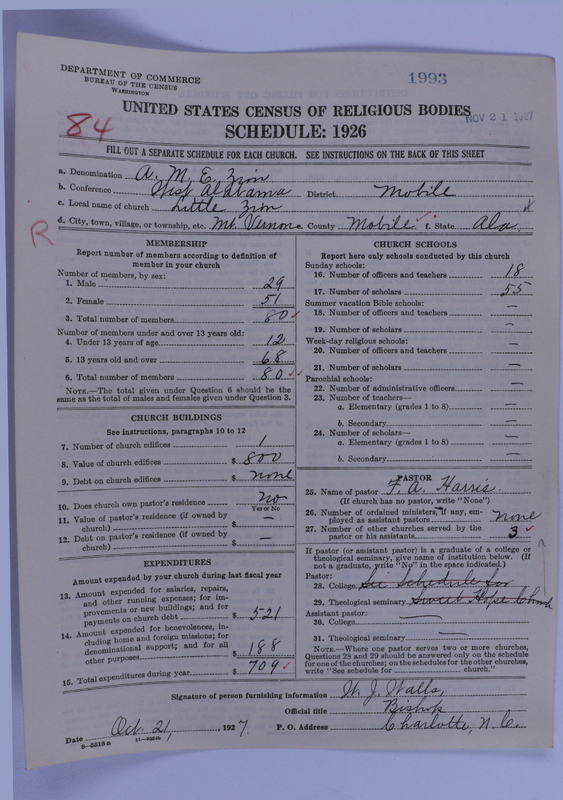 DEPARTMENT OF COMMERCE
BUREAU OF THE CENSUS
WASHINGTON
1993
UNITED STATES CENSUS OF RELIGIOUS BODIES
NOV 21 1927
84
SCHEDULE: 1926
FILL OUT A SEPARATE SCHEDULE FOR EACH CHURCH. SEE INSTRUCTIONS ON THE BACK OF THIS SHEET
a. Denomination A. M. E. Zion
b. Conference West Alabama District Mobile
c. Local name of church Little Zion
d. City, town, village, or township, etc. Mt. Vernon e. County Mobile f. State Ala.
R
MEMBERSHIP
Report number of members according to definition of
member in your church
Number of members, by sex:
1. Male 29
2. Female 51
3. Total number of members 80 ✓
Number of members under and over 13 years old:
4. Under 13 years of age 12
5. 13 years old and over 68
6. Total number of members 80 ✓✓
NOTE.—The total given under Question 6 should be the
same as the total of males and females given under Question 3.
CHURCH BUILDINGS
See instructions, paragraphs 10 to 12
7. Number of church edifices 1
8. Value of church edifices $ 800
9. Debt on church edifices $ none
10. Does church own pastor's residence no
Yes or No
11. Value of pastor's residence (if owned by
church) $ —
12. Debt on pastor's residence (if owned by
church) $ —
EXPENDITURES
Amount expended by your church during last fiscal year
13. Amount expended for salaries, repairs,
and other running expenses; for im-
provements or new buildings; and for
payments on church debt $ 521
14. Amount expended for benevolences, in-
cluding home and foreign missions; for
denominational support; and for all
other purposes $ 188
15. Total expenditures during year $ 709 ✓
CHURCH SCHOOLS
Report here only schools conducted by this church
Sunday schools:
16. Number of officers and teachers 18
17. Number of scholars 55
Summer vacation Bible schools:
18. Number of officers and teachers —
19. Number of scholars —
Week-day religious schools:
20. Number of officers and teachers —
21. Number of scholars —
Parochial schools:
22. Number of administrative officers —
23. Number of teachers—
a. Elementary (grades 1 to 8) —
b. Secondary —
24. Number of scholars—
a. Elementary (grades 1 to 8) —
b. Secondary —
PASTOR
25. Name of pastor F. A. Harris
(If church has no pastor, write "None")
26. Number of ordained ministers, if any, em-
ployed as assistant pastors none
27. Number of other churches served by the
pastor or his assistants 3 ✓
If pastor (or assistant pastor) is a graduate of a college or
theological seminary, give name of institution below. (If
not a graduate, write "No" in the space indicated.)
Pastor:
28. College See Schedule for
29. Theological seminary Sweet Hope Church
Assistant pastor:
30. College —
31. Theological seminary —
NOTE.—Where one pastor serves two or more churches,
Questions 28 and 29 should be answered only on the schedule
for one of the churches; on the schedules for the other churches,
write "See schedule for church."
Signature of person furnishing information W. J. Walls,
Official title Bishop
Date Oct. 21, 1927. P. O. Address Charlotte, N. C.